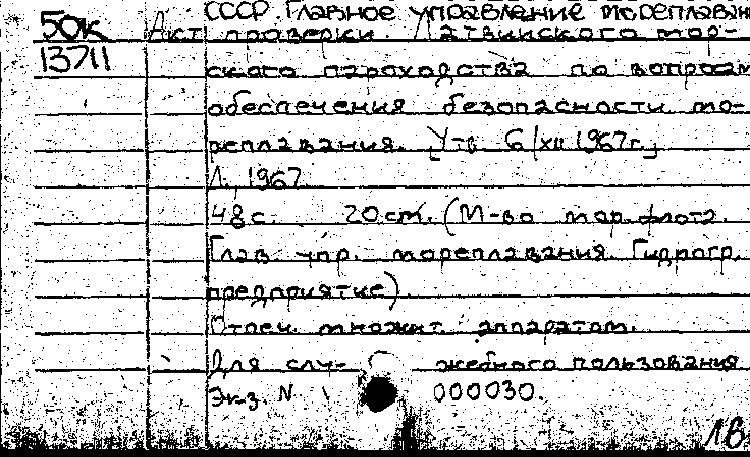 СССР. Главное управление мореплаван
50к Акт проверки Латвийского мор-
13711 ского пароходства по вопросам
обеспечения безопасности мо-
реплавания. [Утв. 6/XII 1967г.]
Л., 1967
48с. 20см. (М-во мор. флота.
Глав. упр. мореплавания. Гидрогр.
предприятие).
Отпеч. множит. аппаратом.
Для слу- жебного пользования
Экз. N 000030.